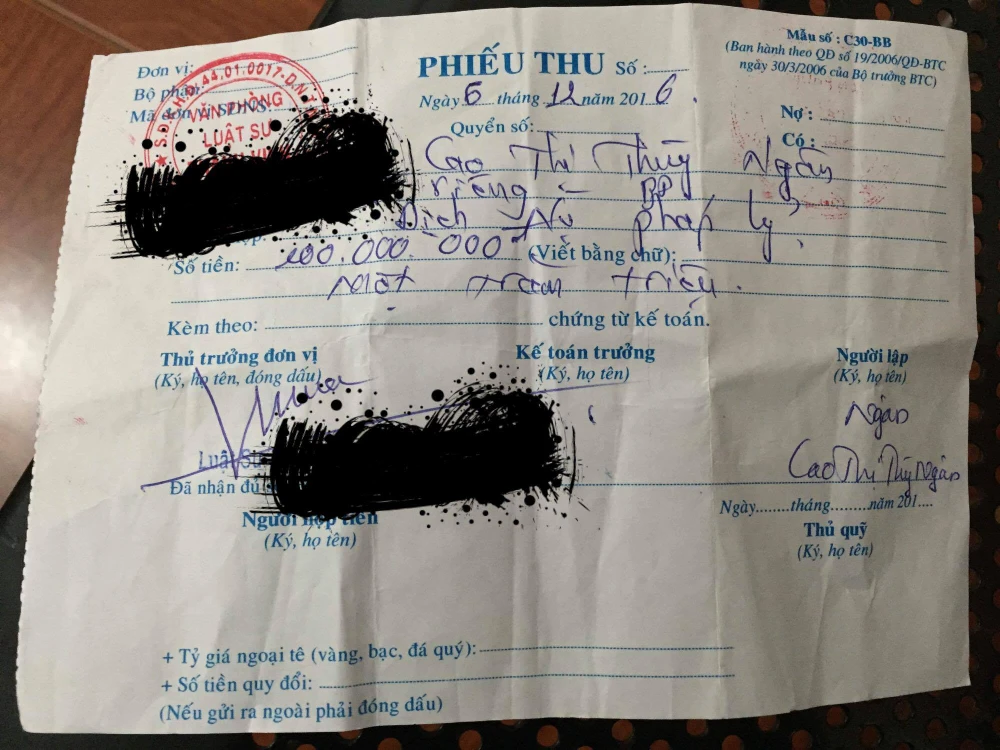 Mẫu số : C30-BB
(Ban hành theo QĐ số 19/2006/QĐ-BTC
ngày 30/3/2006 của Bộ trưởng BTC)
Đơn vị:
Bộ phận:
Mã đơn vị SDNS:
S.Đ.K.H.Đ: 44.01.0017-Đ.N.T.
VĂN PHÒNG
LUẬT SƯ
PHIẾU THU Số :
Ngày 6 tháng 12 năm 2016.
Quyển số:
Nợ :
Có :
Cao Thị Thùy Ngân
riêng - BP
Dịch vụ pháp lý.
Số tiền: 100.000.000đ (Viết bằng chữ):
Một trăm triệu.
Kèm theo: chứng từ kế toán.
Thủ trưởng đơn vị
(Ký, họ tên, đóng dấu)
Kế toán trưởng
(Ký, họ tên)
Người lập
(Ký, họ tên)
Ngân
Cao Thị Thùy Ngân
Luật Sư
Đã nhận đủ
Ngày........tháng.........năm 201....
Người nộp tiền
(Ký, họ tên)
Thủ quỹ
(Ký, họ tên)
+ Tỷ giá ngoại tê (vàng, bạc, đá quý):
+ Số tiền quy đổi:
(Nếu gửi ra ngoài phải đóng dấu)